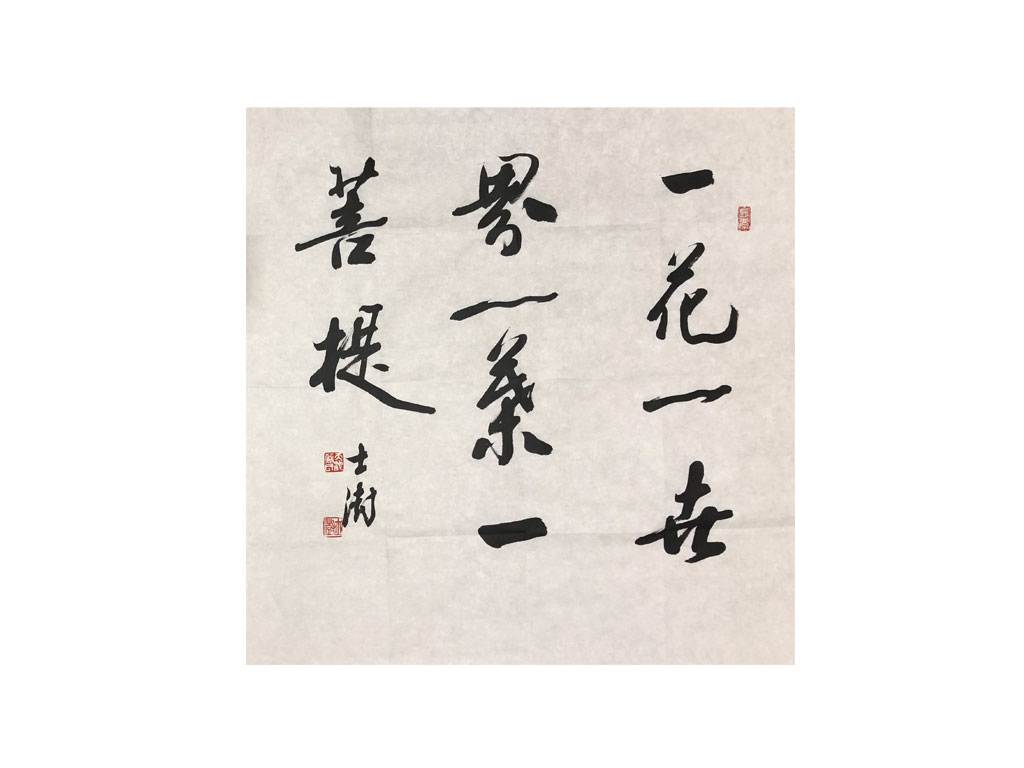 一花一世
界一葉一
菩提
士澍